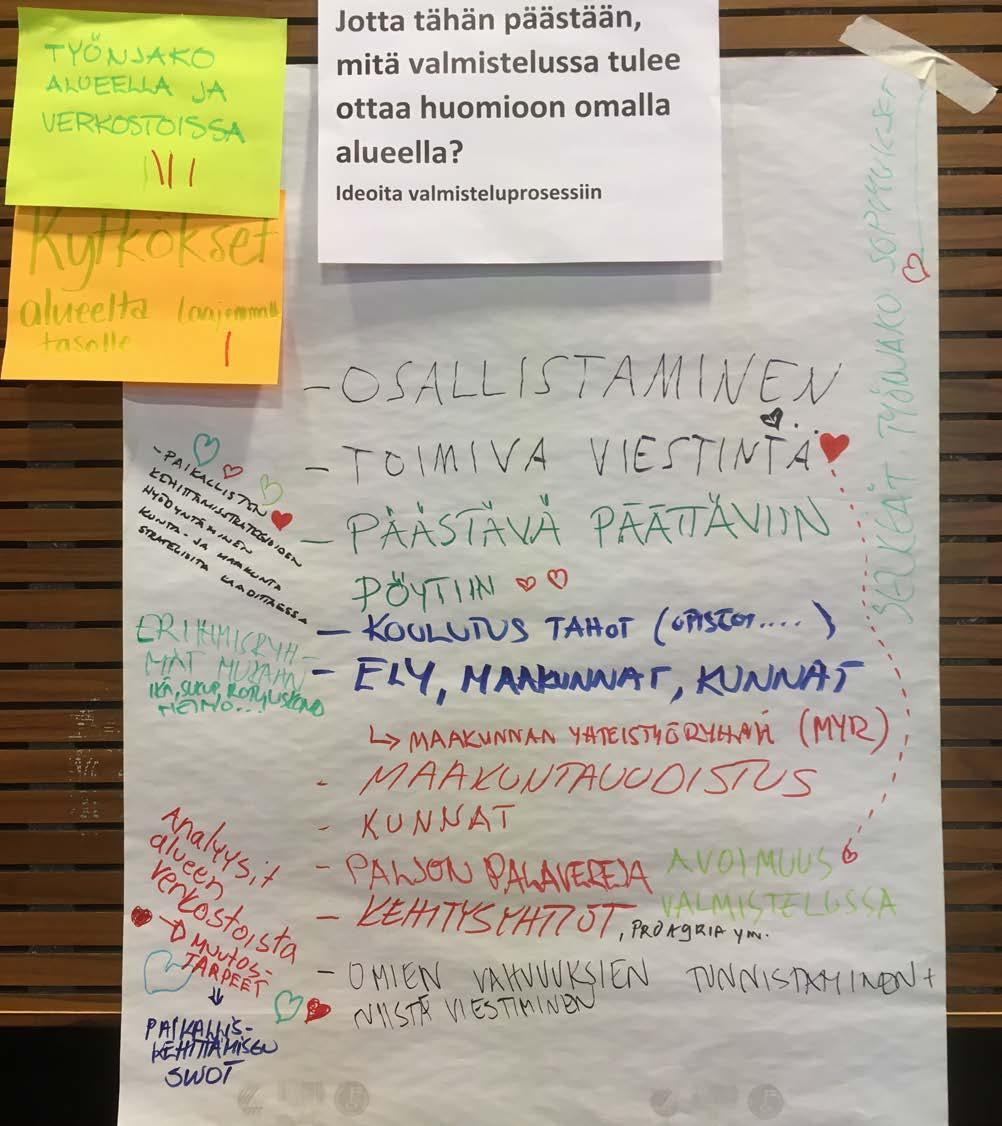 TYÖNJAKO
ALUEELLA JA
VERKOSTOISSA
Kytkökset
alueelta laajemmalle
tasolle
Jotta tähän päästään,
mitä valmistelussa tulee
ottaa huomioon omalla
alueella?
Ideoita valmisteluprosessiin
- OSALLISTAMINEN
- TOIMIVA VIESTINTÄ
- PÄÄSTÄVÄ PÄÄTTÄVIIN
PÖYTIIN
- KOULUTUS TAHOT (OPISTOT....)
- ELY, MAAKUNNAT, KUNNAT
↳ MAAKUNNAN YHTEISTYÖRYHMÄ (MYR)
- MAAKUNTAUUDISTUS
- KUNNAT
- PALJON PALAVEREJA
- KEHITYSYHTIÖT, PROAGRIA YM.
AVOIMUUS
VALMISTELUSSA
- OMIEN VAHVUUKSIEN TUNNISTAMINEN +
NIISTÄ VIESTIMINEN
- PAIKALLISTEN
KEHITTÄMISSTRATEGIOIDEN
HYÖDYNTÄMINEN
KUNTA- JA MAAKUNTA
STRATEGIOITA LAADITTAESSA
ERI IHMISRYH-
MÄT MUKAAN
IKÄ, SUKUP,
HEIMO...
Analyysit
alueen
verkostoista
→ MUUTOS-
TARPEET
↓
PAIKALLIS-
KEHITTÄMISEN
SWOT
SELKEÄT TYÖNJAKO SOPIMUKSET